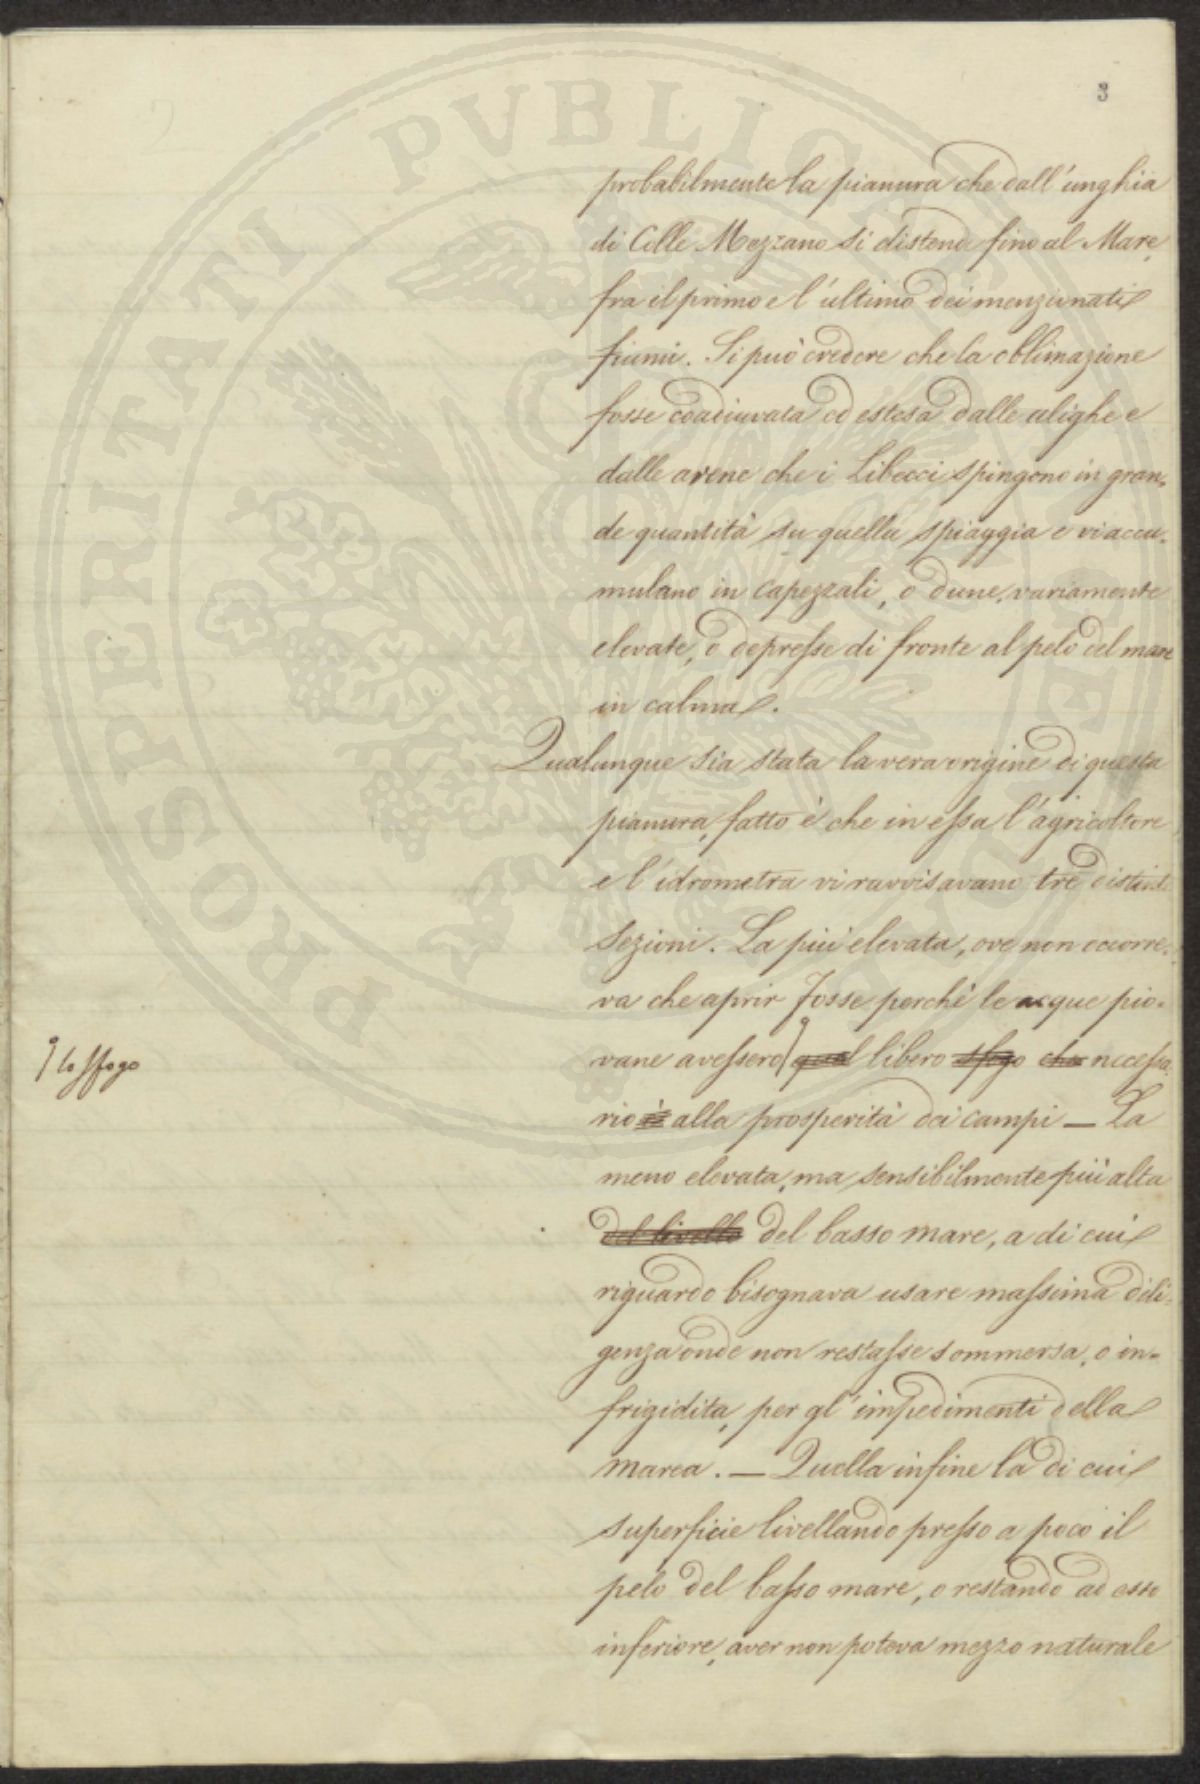 3
probabilmente la pianura che dall'unghia
di Colle Mezzano si distende fino al Mare,
fra il primo e l'ultimo dei menzionati
fiumi. Si può credere che la oblimazione
fosse coadiuvata ed estesa dalle alighe e
dalle arene che i Libecci spingono in gran-
de quantità su quella spiaggia e vi accu-
mulano in capezzali, o dune, variamente
elevate, o depresse di fronte al pelo del mare
in calma.
Qualunque sia stata la vera origine di questa
pianura, fatto è che in essa l'agricoltore
e l'idrometra vi ravvisavano tre distinte
Sezioni. La più elevata, ove non occorre-
va che aprir Fosse perchè le acque pio-
lo sfogo
vane avessero quel libero sfogo che necessa-
rio è alla prosperità dei campi — La
meno elevata, ma sensibilmente più alta
del livello del basso mare, a di cui
riguardo bisognava usare massima dili-
genza onde non restasse sommersa, o in-
frigidita, per gl'impedimenti della
marea. — Quella infine la di cui
superficie livellando presso a poco il
pelo del basso mare, o restando ad esso
inferiore, aver non poteva mezzo naturale
PROSPERITATI PVBLICAE